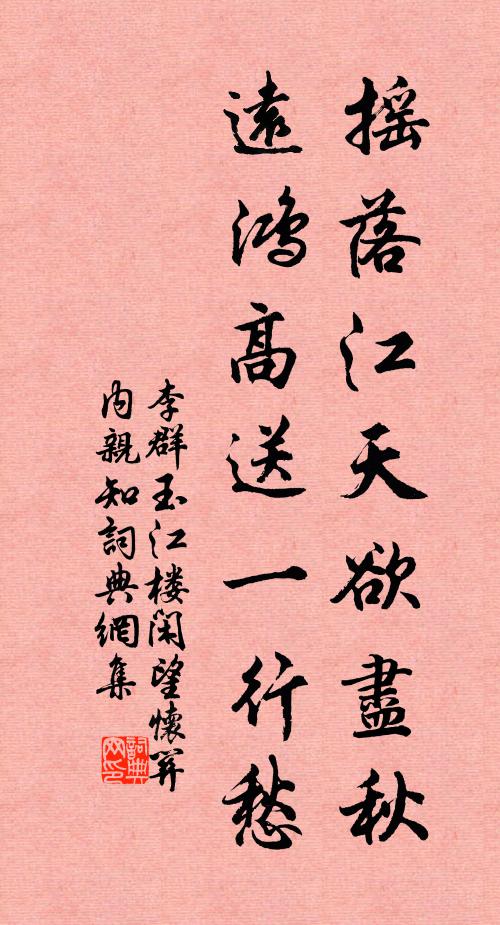 搖落江天欲盡秋
遠鴻高送一行愁
李群玉江楼閑望懷關
内親知詞典網集
詞典网印